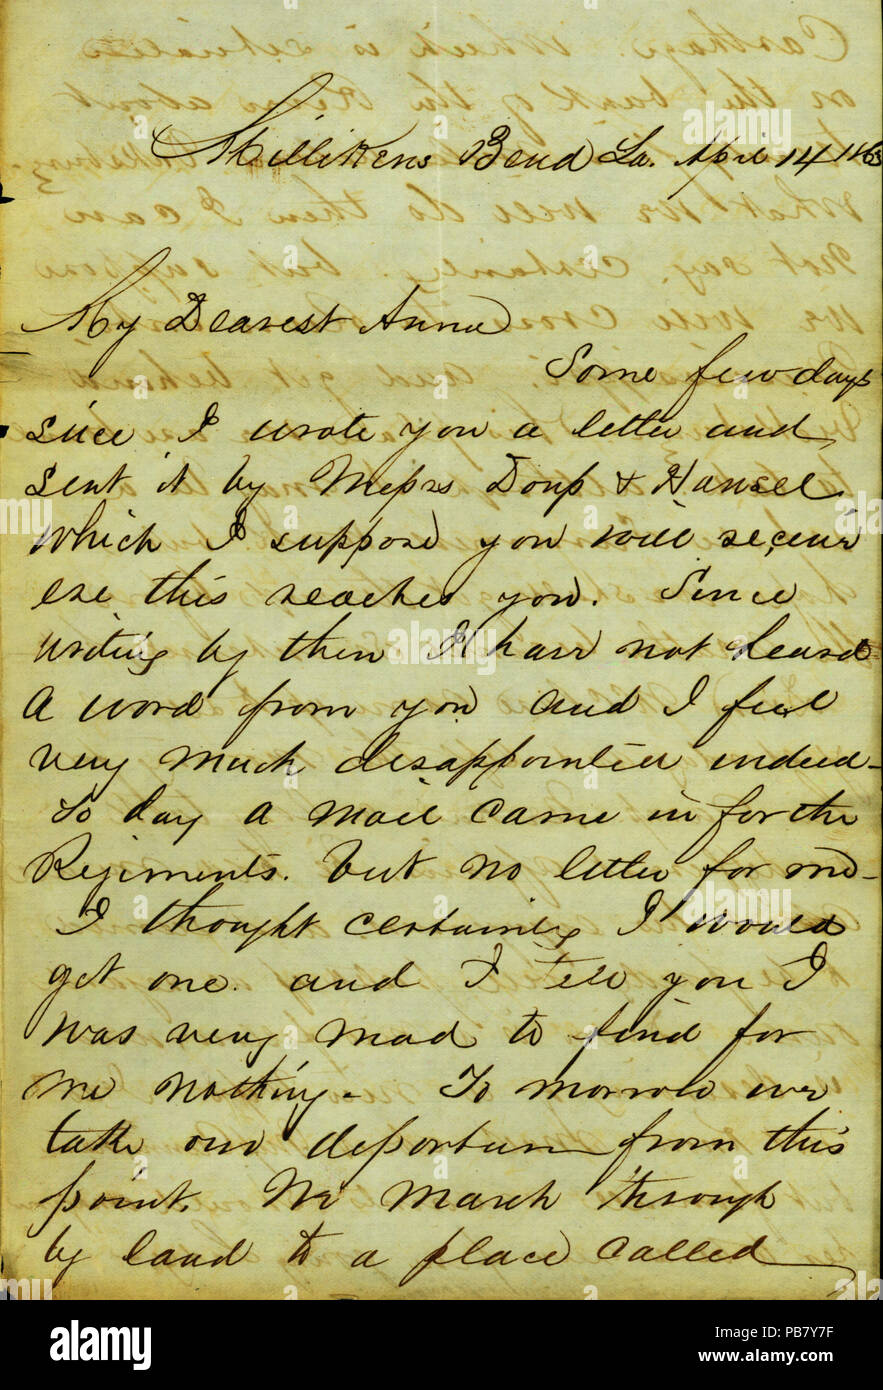 Millikens Bend La. April 14 1863
My Dearest Anna
Some few days
since I wrote you a letter and
sent it by Messrs Doup & Hansel
which I suppose you will receive
ere this reaches you. Since
writing by them I have not heard
a word from you and I feel
very much disappointed indeed-
To day a mail came in for the
Regiments. but no letter for me-
I thought certainly I would
get one. and I tell you I
was very mad to find for
me nothing- To morrow we
take our departure from this
point. We march through
by land to a place called
alamy stock photo
PB7Y7F
www.alamy.com